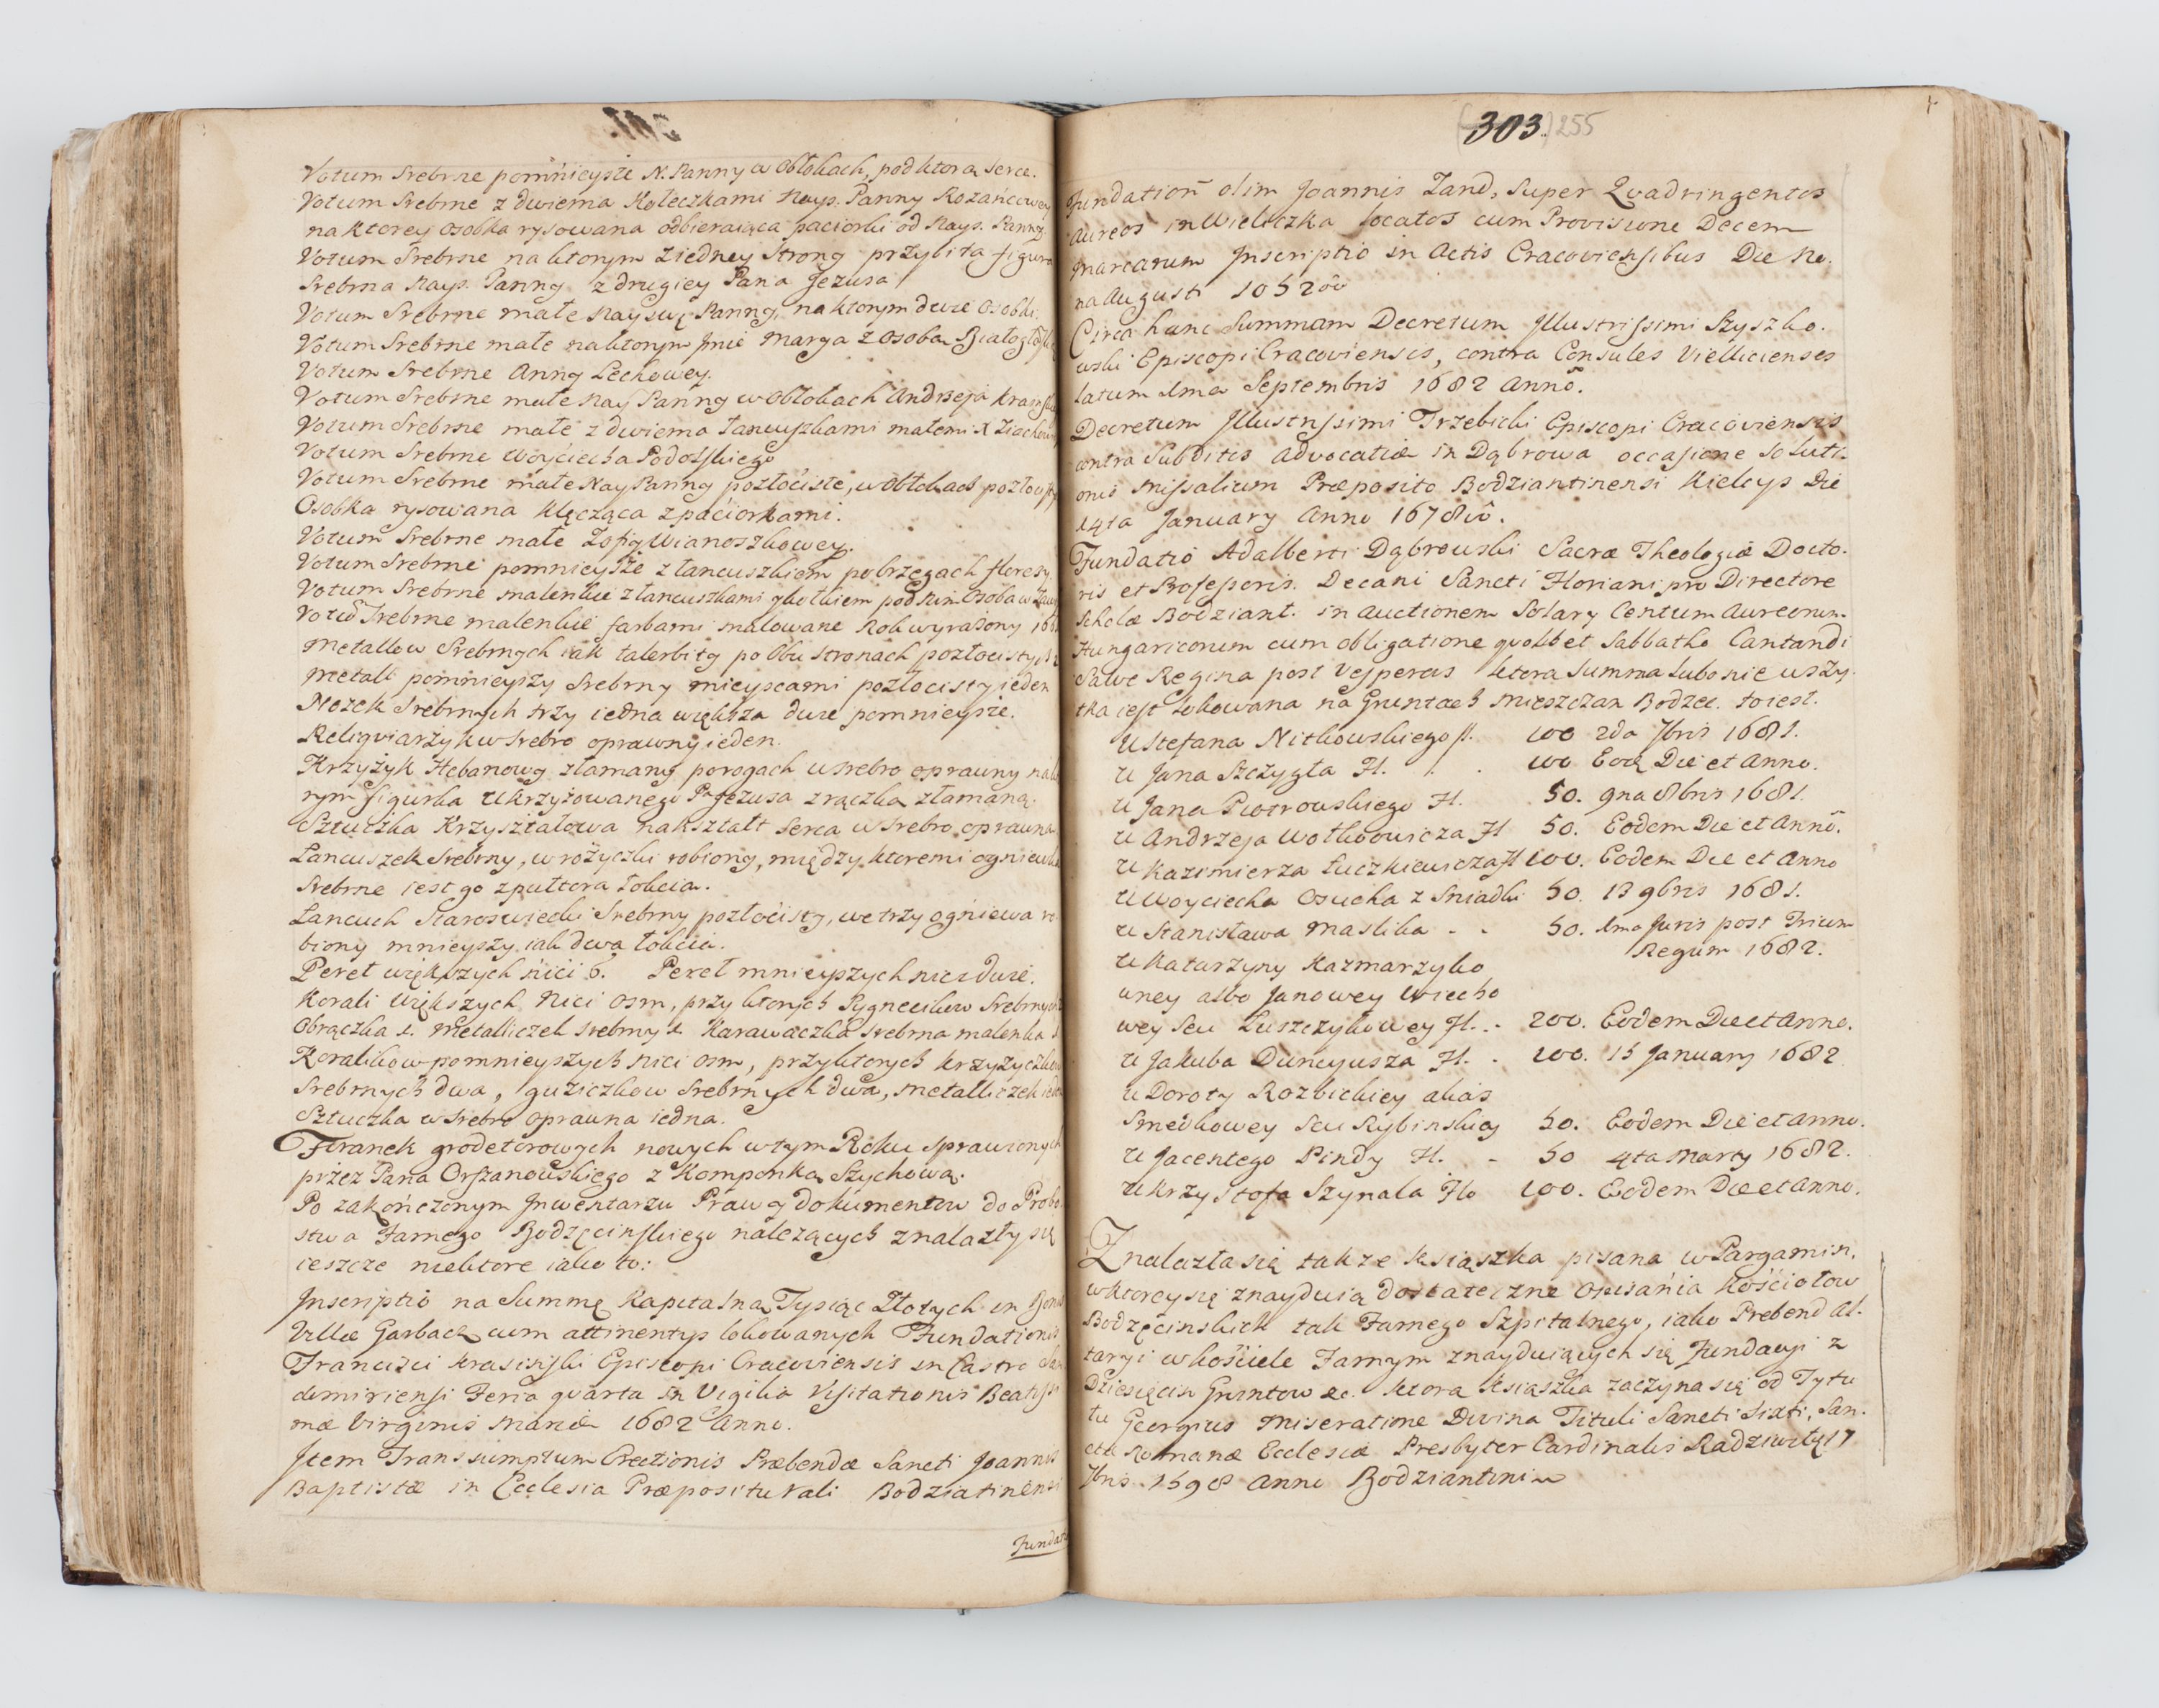 Votum Srebrne pomńieysze N. Panny w Obłokach, pod ktorą Serce.
Votum Srebrne z dwiema Kołeczkami Nays. Panny Rozańcowey
na ktorey osobka rysowana odbieraiąca paciorki od Nays. Panny
Votum Srebrne na ktorym ziedney Strony przybita figura
Srebrna Nays. Panny z drugiey Pana Jezusa
Votum Srebrne małe Nayswę Panny, na ktorym dwie Osobki.
Votum Srebrne małe na ktorym Jmie Marya z osobą
Votum Srebrne Anny Lechowey.
Votum Srebrne małe Nay Panny w obłokach Andrzeja
Votum Srebrne małe z dwiema łancuszkami małemi X
Votum Srebrne Woyciecha Podolskiego
Votum Srebrne małe Nay Panny pozłociste, w obłokach
Osobka rysowana klęcząca z paciorkami.
Votum Srebrne małe Zofiy Wianoszkowey.
Votum Srebrne pomnieysze z łancuszkiem po brzegach floresy
Votum Srebrne malenkie z łancuszkami y kołkiem pod nim Osoba w
Votū Srebrne malenkie farbami malowane Rok wyrazony
Metallow Srebrnych iak talerbity po Obu stronach pozłocistych
Metall pomnieyszy Srebrny mieyscami pozłocisty ieden
Nozek Srebrnych trzy iedna większa dwie pomnieysze.
Religviarzyk w Srebro oprawny ieden.
Krzyżyk Hebanowy złamany po rogach w srebro oprawny na
rym figurka Ukrzyżowanego Pa Jezusa z rączką złamaną.
Sztuczka Krzyształowa nakształt Serca w Srebro oprawna
Lancuszek Srebrny, w rożyczki robiony, między ktoremi ogniewka
Srebrne iest go z pułtora łokcia.
Lancuch Staroswiecki Srebrny pozłocisty, we trzy ogniewa ro-
biony mnieyszy iak dwa łokcia.
Pereł większych nici 6. Pereł mnieyszych nici dwie.
Korali większych Nici osm, przy ktorych Sygnecikow Srebrnych
Obrączka 1. Metalliczek srebrny 1. Karawaczka srebrna malenka
Koralikow pomnieyszych nici osm, przy ktorych krzyżyczkow
Srebrnych dwa, guziczkow Srebrnych dwa, Metalliczek ieden
Sztuczka w Srebro oprawna iedna.
Firanek grodetorowych nowych w tym Roku sprawionych
przez Pana Orszanowskiego z Komponką Szychową.
Po zakończonym Jnwentarzu Praw y Dokumentow do Probo
stwa Farnego Bodzęcinskiego należących znalazły się
ieszcze niektore iako to:
Jnscriptio na Summę Kapitalną Tysiąc Złotych in Bonis
Villæ Garbacz cum attinentys lokowanych Fundationis
Francisci Krasinski Episcopi Cracoviensis in Castro
domiriensi Feria quarta in Vigilia Visitationis Beatissi
mæ Virginis Mariæ 1682 Anno.
Jtem Transsumptum Erectionis Præbendæ Sancti Joannis
Baptistæ in Ecclesia Præpositurali Bodziatinensi
Fundati
303. 255
Fundation̄ olim Joannis Zand, Super Qvadringentos
Aureos in Wieliczka locatos cum Provisione Decem
Marcarum Jnscriptio in Actis Cracoviensibus Die No.
na Augusti 1652
Circa hanc Summam Decretum Jllustrissimi Szyszko.
wski Episcopi Cracoviensis, contra Consules Viellicienses
latum 1ma Septembris 1682 Anno.
Decretum Jllustrissimi Trzebicki Episcopi Cracoviensis
contra Subditis Advocatiæ in Dąbrowa occasione Soluti-
onis Missalium Præposito Bodziantinensi Kielcys Die
14ta January Anno 1678
Fundatio Adalberti Dąbrowski Sacræ Theologiæ Docto.
ris et Professoris. Decani Sancti Floriani pro Directore
Scholæ Bodziant. in auctionem Solary Centum Aureorum
Hungaricorum cum obligatione quolibet Sabbatho Cantandi
Salve Regina post Vesperas ktora Summa lubo nie wszy.
tka iest lokowana na Gruntach Mieszczan Bodzec. to iest.
U Stefana Nitkowskiego fl. 100 2da 7bris 1681.
u Jana Szczygła Fl. . . 100 Eod Die et Anno.
u Jana Piotrowskiego Fl. 50. 9na 8bris 1681.
u Andrzeja Wołkowicza Fl 50. Eodem Die et Anno.
u Kazimierza Łuczkiewicza fl 100. Eodem Die et Anno
u Woyciecha Osucha z Sniadki 50. 13 9bris 1681.
u Stanisława Maslika - - 50. 1ma Juris post Trium
Regum 1682.
u Katarzyny Kazmarzyko
wney albo Janowey Wiecho
wey Seu Luszczykowey Fl. . - 200. Eodem Die et Anno.
u Jakuba Duncyusza Fl. . 100. 15 January 1682
u Doroty Rozbickiey alias
Smećkowey Seu Rybinskiey 50. Eodem Die et Anno.
u Jacentego Pindy Fl. . - 50 4ta Marty 1682.
U Krzysztofa Szynala Flo 100. Eodem Die et Anno.
Znalazła się także Ksiąszka pisana w Pargamin,
w ktorey się znayduią dostateczne Opisania Kościołow
Bodzęcinskich tak Farnego Szpitalnego, iako Prebend Al-
taryi w kościele Farnym znayduiących się Fundacyi z
Dziesięcin Gruntow &c. ktora Ksiąszka zaczyna się od Tytu
łu Georgius Miseratione Divina Tituli Sancti Sixti, San.
ctæ Romanæ Ecclesiæ Presbyter Cardinalis Radziwił 17
7bris 1598 Anno Bodziantini